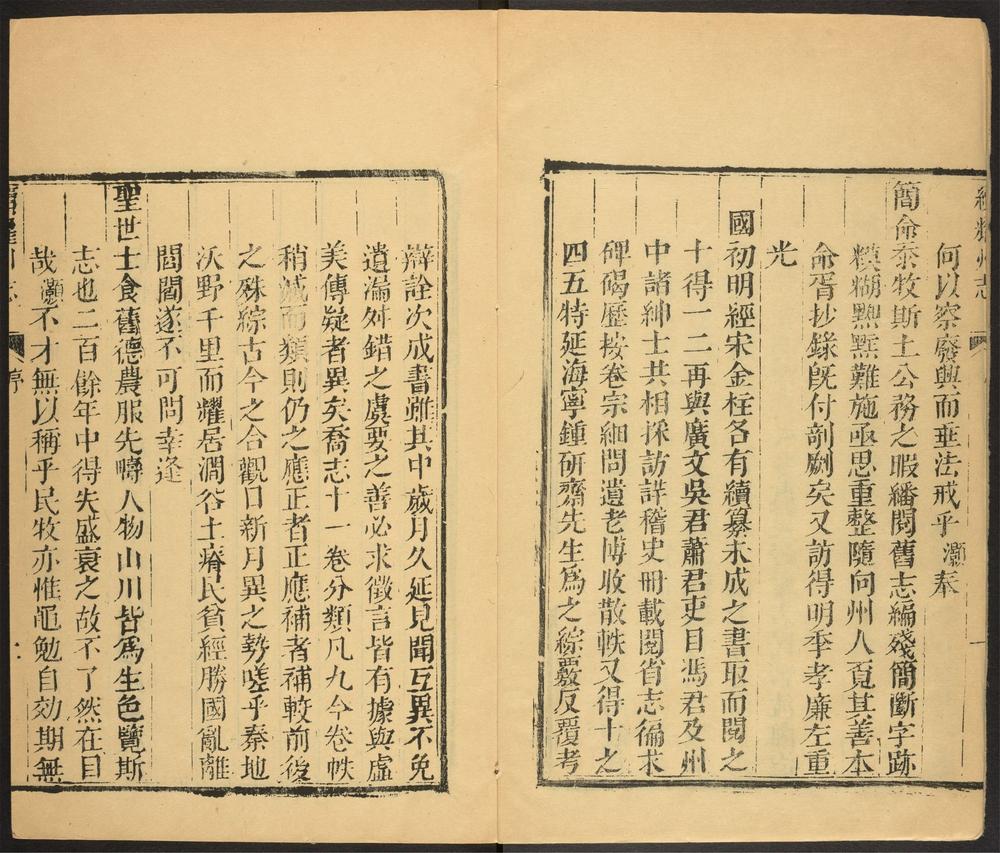 續耀州志
何以察廢興而垂法戒乎灝奉
簡命泰牧斯土公務之暇繙閱舊志編殘簡斷字跡
糢糊黑㸃難施亟思重整隨向州人覓其善本
命胥抄錄旣付剞劂矣又訪得明季孝廉左重
光
國初明經宋金柱各有續纂未成之書取而閱之
十得一二再與廣文吳君蕭君吏目馮君及州
中諸紳士共相採訪詳稽史冊載閱省志徧求
碑碣歷按卷宗細問遺老博收散軼又得十之
四五特延海寧鍾研齋先生為之綜覈反覆考
辯詮次成書雖其中歲月久延見聞互異不免
遺漏舛錯之虞要之善必求徵言皆有據與虛
美傳疑者異矣喬志十一卷分類凡九今卷帙
稍減而類則仍之應正者正應補者補較前後
之殊綜古今之合觀日新月異之勢嗟乎秦地
沃野千里而耀居澗谷土瘠民貧經勝國亂離
閭閻遂不可問幸逢
聖世士食舊德農服先疇人物山川皆爲生色覽斯
志也二百餘年中得失盛衰之故不了然在目
哉灝不才無以稱乎民牧亦惟黽勉自効期無
序